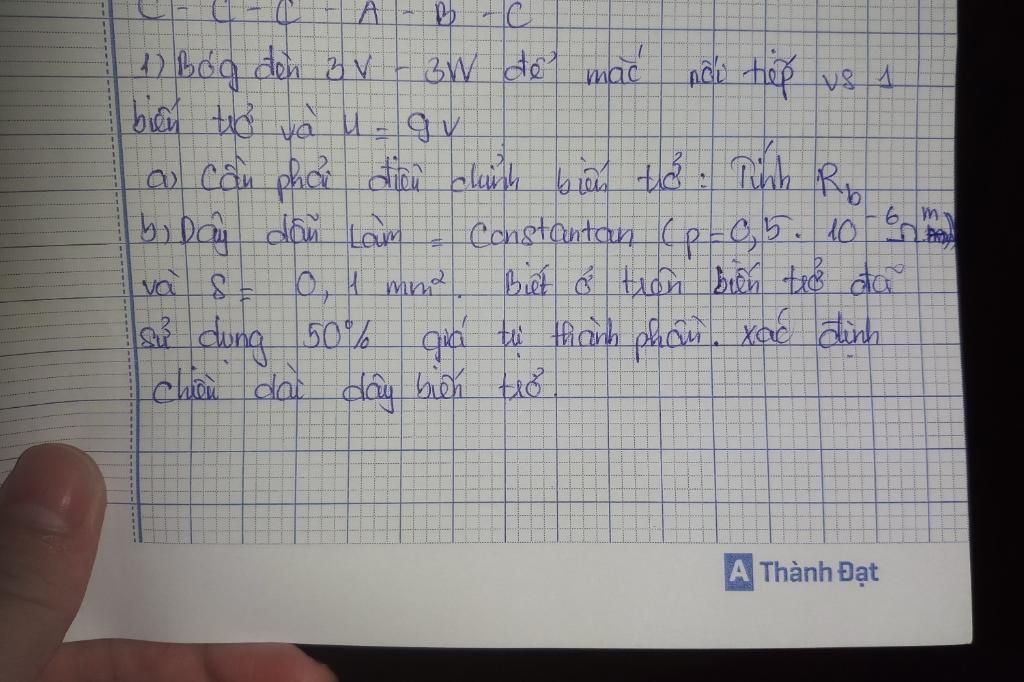 C - C - C - A - B - C
1) Bóg đèn 3V - 3W để mắc nối tiếp vs 1
biến trở và U = 9V
a) Cần phải điều chỉnh biến trở : Tính Rb
b) Dây dẫn làm = Constantan (p = 0,5 . 10⁻⁶ Ωm)
và S = 0,1 mm². Biết ở trên biến trở đã
sử dụng 50% giá trị thành phần. xác định
chiều dài dây biến trở.
A Thành Đạt